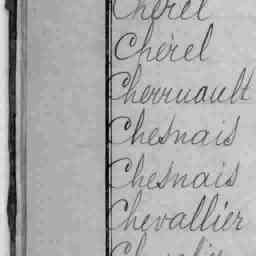 Cherel
Chérel
Cherruault
Chesnais
Chesnais
Chevallier